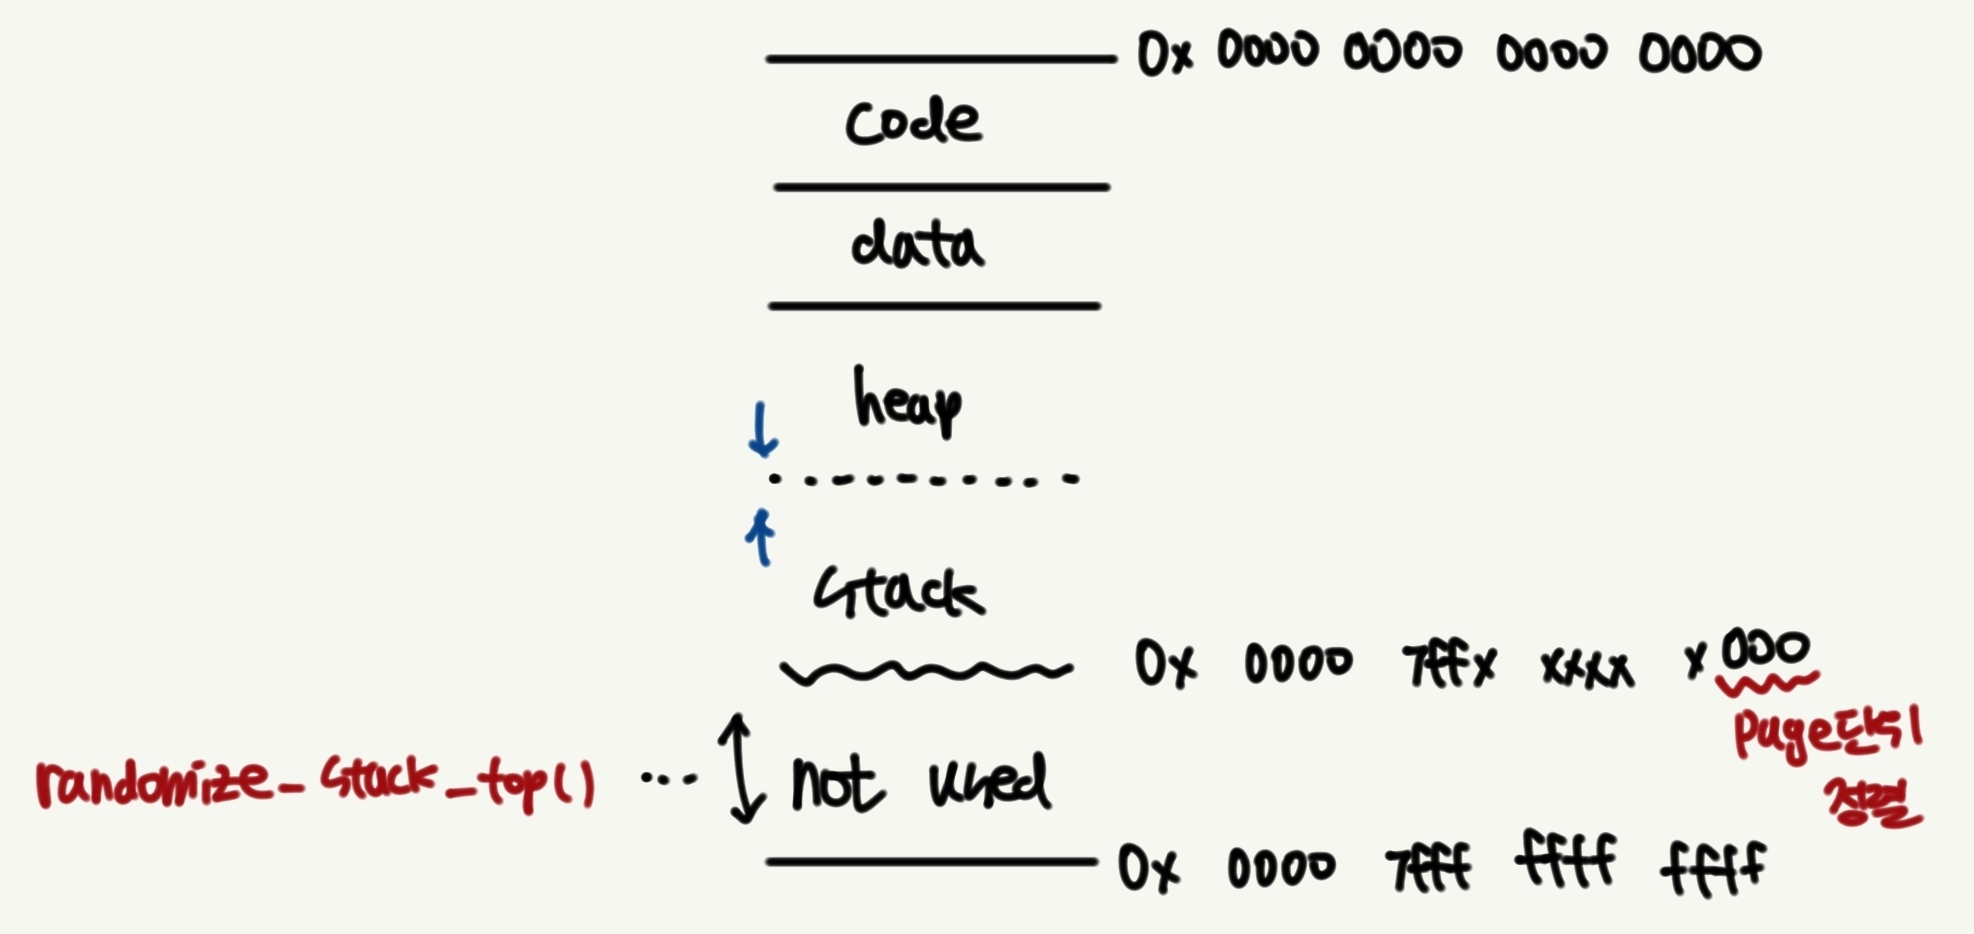 0x 0000 0000 0000 0000
Code
data
heap
Stack
0x 0000 7ffx xxxx x000
page단위
정렬
randomize_stack_top() ... not used
0x 0000 7fff ffff ffff